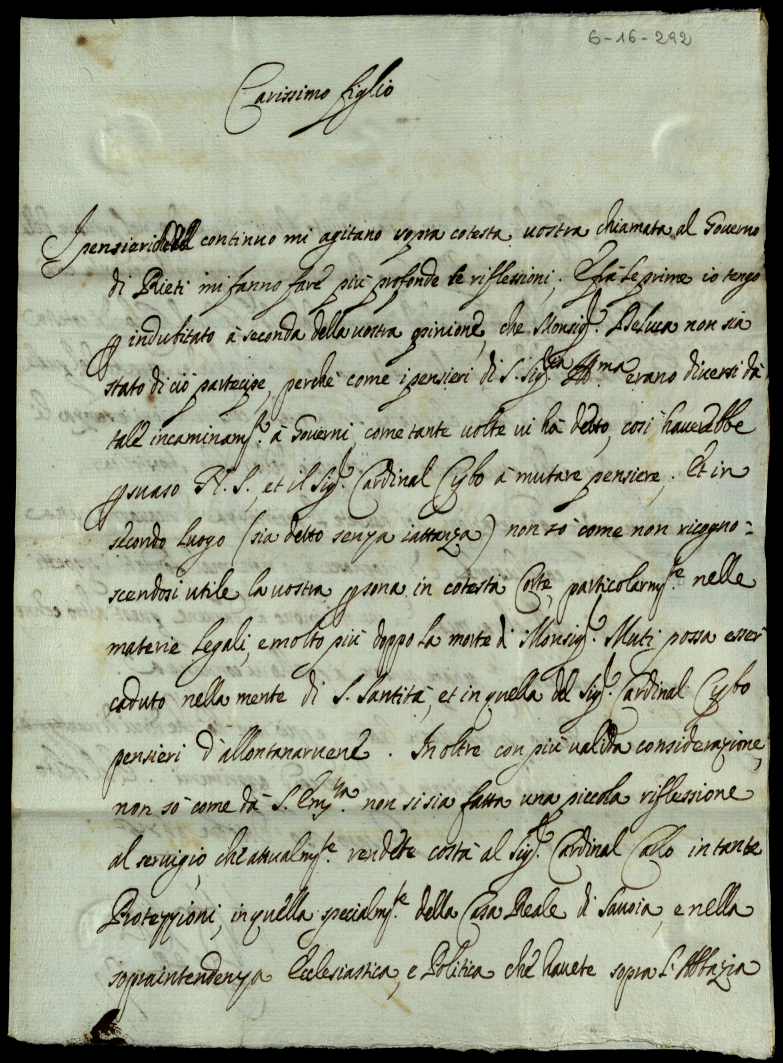 6-16-292
Carissimo figlio
I pensieri continuo mi agitano sopra cotesta vostra chiamata al Governo
di Rieti mi fanno fare più profonde le riflessioni. E frà le prime io tengo
p indubitato à seconda della vostra opinione, che Monsig.r Deluca non sia
stato di ciò partecipe, perche come i pensieri di S. Sig.ria Ill.ma erano diversi dà
tale incaminam.to à Governi, come tante volte vi hà detto, così haverebbe
psuaso N. S., et il Sig.r Cardinal Cybo à mutare pensiere. Et in
secondo luogo (sia detto senza iattanza) non sò come non ricogno=
scendosi utile la vostra psona in cotesta Corte, particolarm.te nelle
materie legali, e molto più doppo la morte di Monsig.r Muti possa esser
caduto nella mente di S. Santità, et in quella del Sig.r Cardinal Cybo
pensieri d'allontanarvene. In oltre con più valida considerazione,
non sò come dà S. Em.za non si sia fatta una piccola riflessione
al servigio, che attualm.te rendete costà al Sig.r Cardinal Carlo in tante
Protezzioni, in quella specialm.te della Casa Reale di Savoia, e nella
sopraintendenza Ecclesiastica, e Politica che havete sopra l'Abbazia